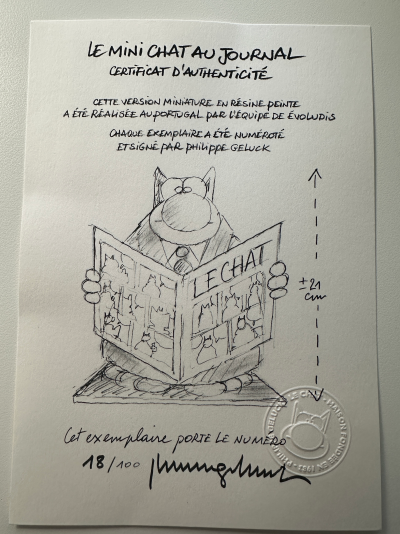 LE MINI CHAT AU JOURNAL
CERTIFICAT D'AUTHENTICITÉ
CETTE VERSION MINIATURE EN RÉSINE PEINTE
A ÉTÉ RÉALISÉE AU PORTUGAL PAR L'ÉQUIPE DE ÉVOLUDIS
CHAQUE EXEMPLAIRE A ÉTÉ NUMÉROTÉ
ET SIGNÉ PAR PHILIPPE GELUCK
LE CHAT
±21
cm
Cet exemplaire PORTE LE NUMÉRO
18/100